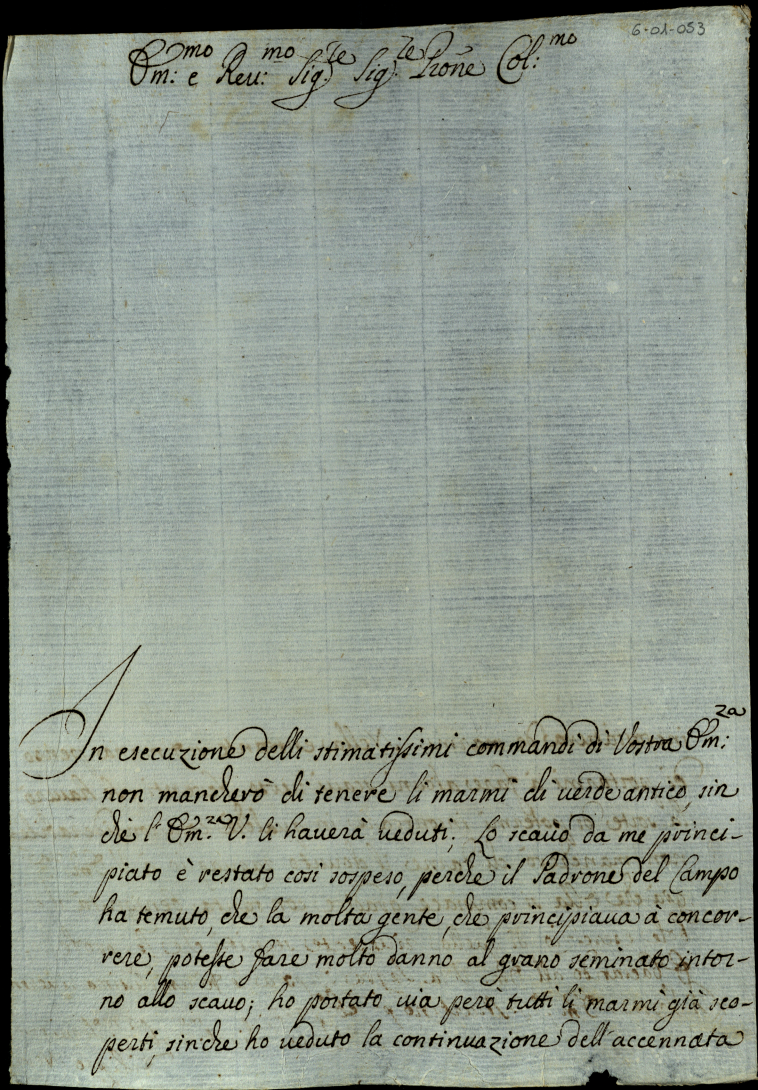 6-01-053
Em:mo e Reu:mo Sig:re Sig:re Prōne Col:mo
In esecuzione delli stimatissimi commandi di Vostra Em:za
non mancherò di tenere li marmi di uerde antico, sin
chè l'Em:za V. li hauerà ueduti; Lo scauo da me princi-
piato è restato così sospeso, perche il Padrone del Campo
ha temuto, che la molta gente, che principiaua a concor-
rere, potesse fare molto danno al grano seminato intor-
no allo scauo; ho portato uia però tutti li marmi già sco-
perti, sinche ho ueduto la continuazione dell'accennata